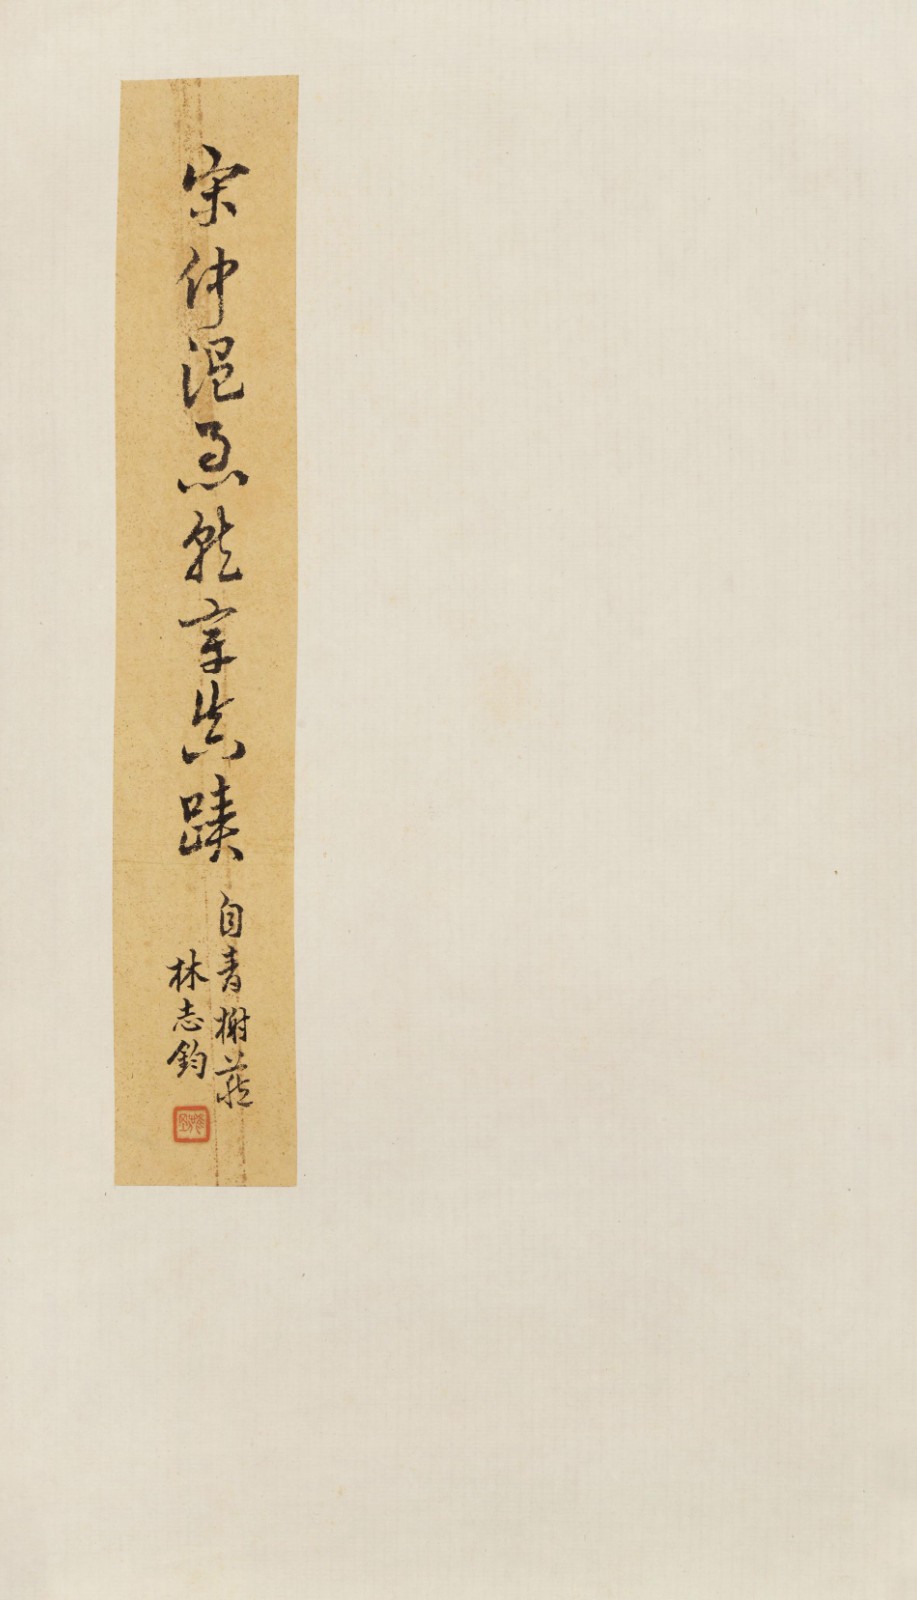 宋仲温急就章真蹟
自青榭藏
林志鈞